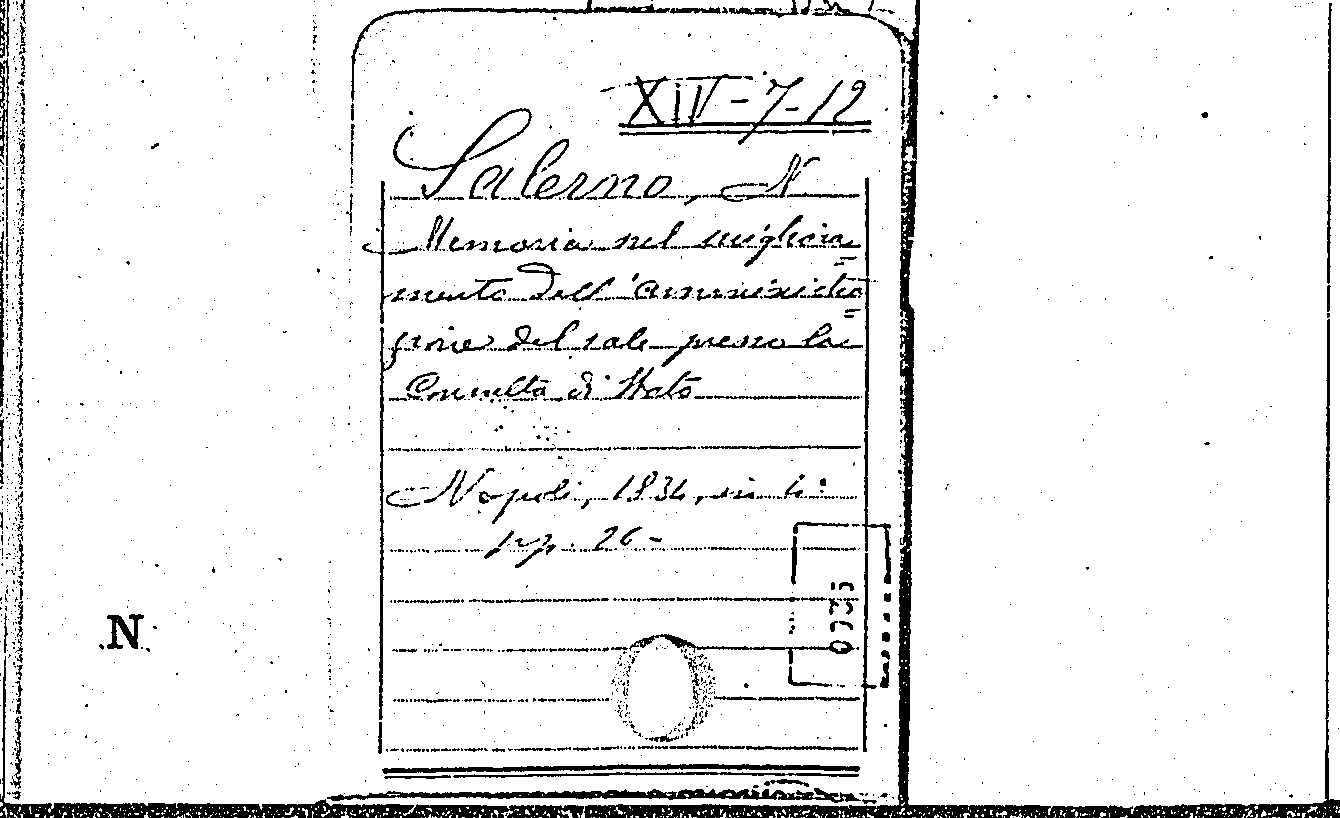 XIV-7-12
Salerno, N
Memoria sul migliora
mento dell'amministra
zione del sale presso la
Consulta di Stato
Napoli, 1834, in 4°
pp. 26-
N